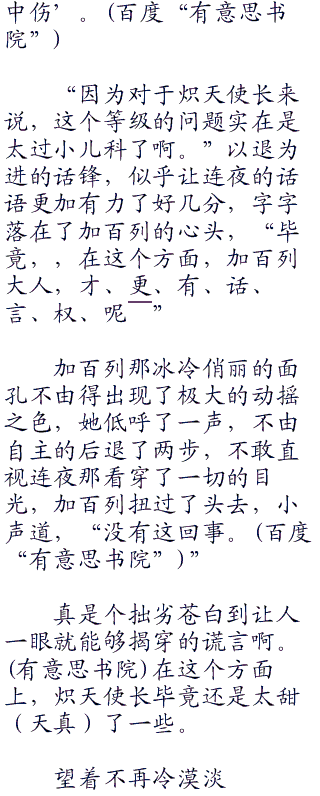 中伤’。(百度“有意思书
院”)
“因为对于炽天使长来
说，这个等级的问题实在是
太过小儿科了啊。”以退为
进的话锋，似乎让连夜的话
语更加有力了好几分，字字
落在了加百列的心头，“毕
竟，，在这个方面，加百列
大人，才、更、有、话、
言、权、呢￣”
加百列那冰冷俏丽的面
孔不由得出现了极大的动摇
之色，她低呼了一声，不由
自主的后退了两步，不敢直
视连夜那看穿了一切的目
光，加百列扭过了头去，小
声道，“没有这回事。(百度
“有意思书院”)”
真是个拙劣苍白到让人
一眼就能够揭穿的谎言啊。
(有意思书院)在这个方面
上，炽天使长毕竟还是太甜
（天真）了一些。
望着不再冷漠淡